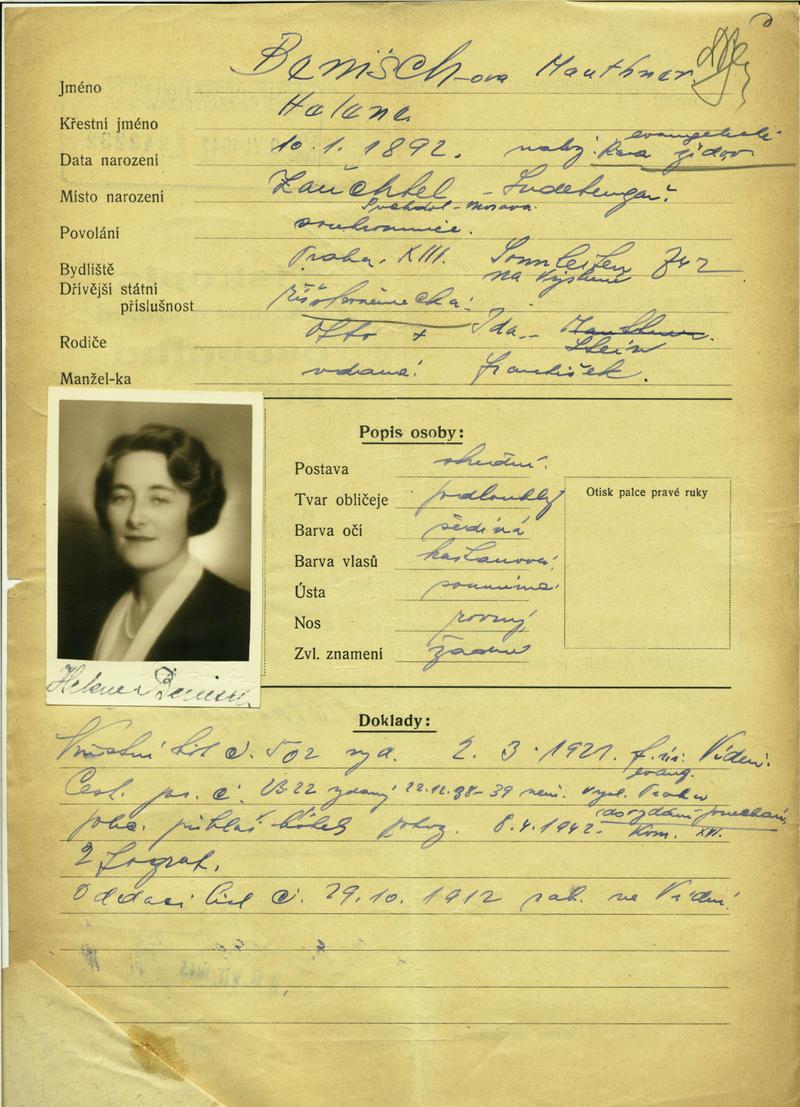 Jméno Benisch-ova Mauthner
Křestní jméno Halana
Data narození 10.1.1892. evangelické
rasa židov
Místo narození Zauchtel - Sudetengau
Suchdol - Morava.
Povolání soukromnice.
Bydliště Praha. XIII. Sonnleiten 742
na Výsluní
Dřívější státní
příslušnost říšskoněmecká
Rodiče Otto + Ida - Mauthner.
Stein
Manžel-ka vdaná František.
Popis osoby:
Postava střední
Tvar obličeje podlouhlý
Barva očí šedivá
Barva vlasů kaštanová
Ústa souměrná
Nos rovný
Zvl. znamení žádné
Otisk palce pravé ruky
Helene Benisch
Doklady:
Křestní list č. 502 vyd. 2.3.1921. Vídeň.
evang.
Cest. pas. č. 22.12.38-39 Praha
polic. přihláš. lístek potvrz. 8.4.1942. Kom. XIII.
2 fotograf.
Oddací list č. 29.10.1912 ve Vídni